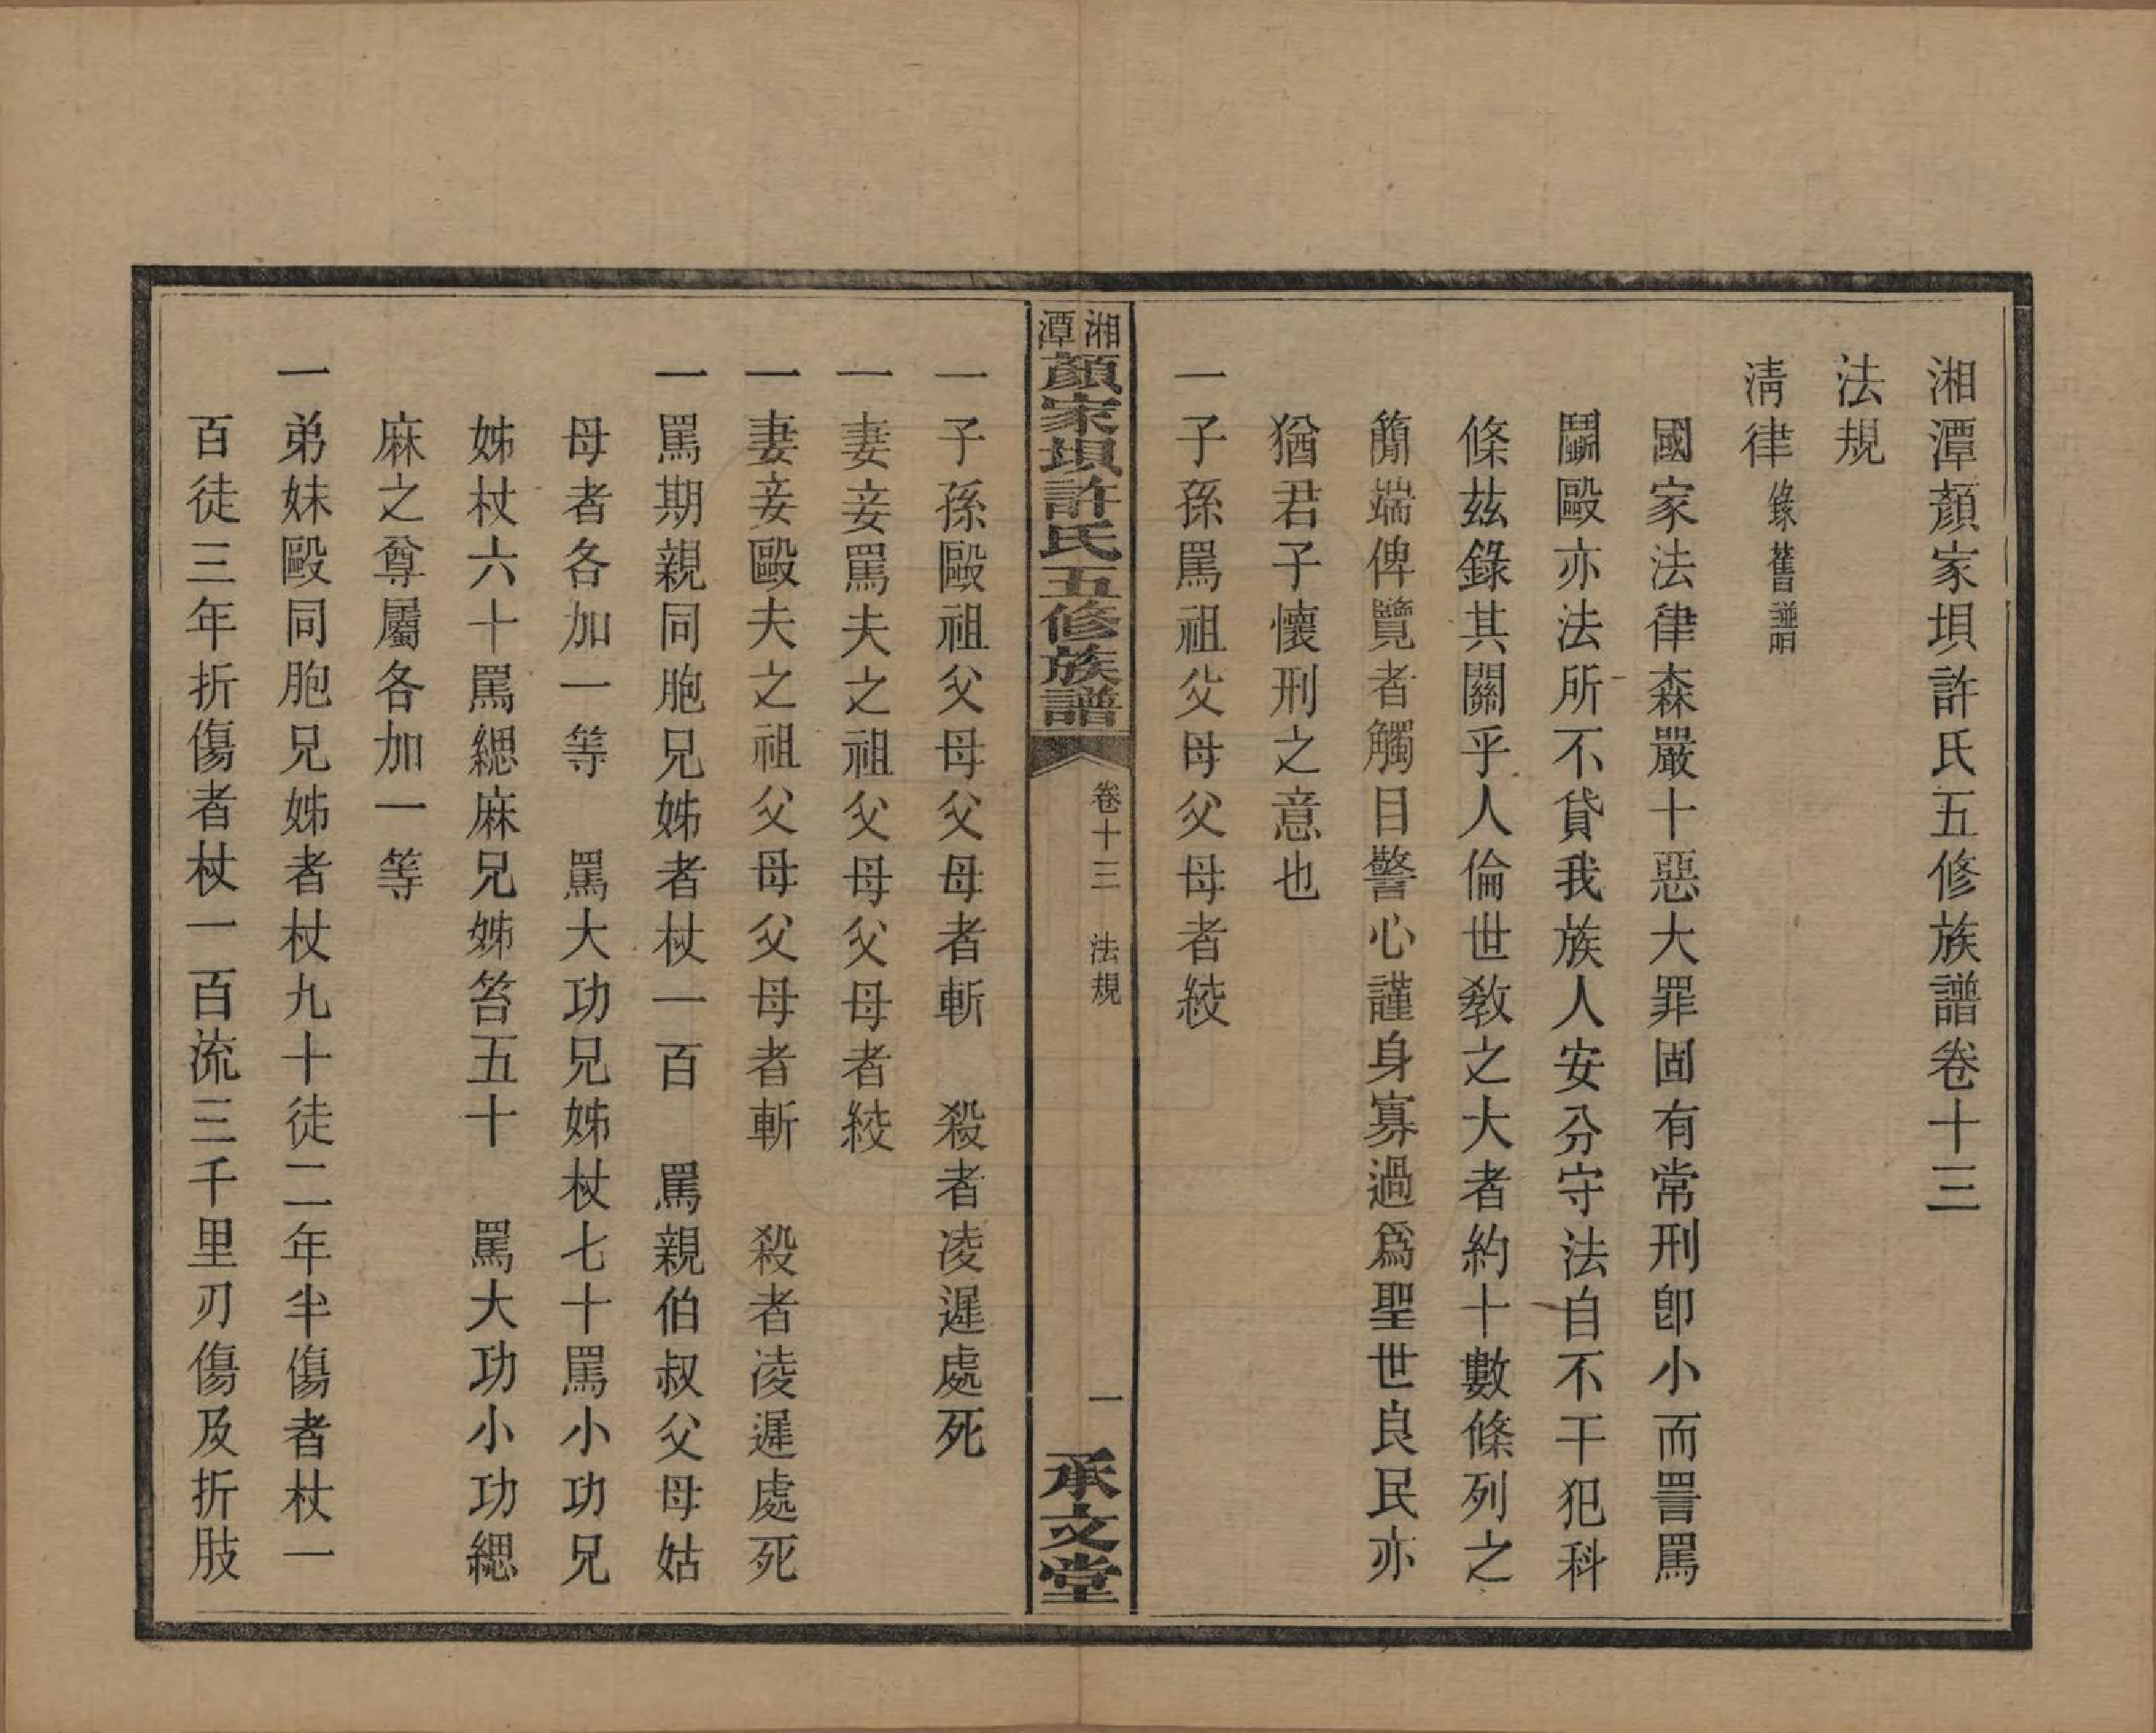 湘潭顏家坝許氏五修族譜卷十三
法規
淸律錄舊譜
國家法律森嚴十惡大罪固有常刑卽小而詈罵
鬬毆亦法所不貸我族人安分守法自不干犯科
條茲錄其關乎人倫世敎之大者約十數條列之
簡端俾覽者觸目警心謹身寡過爲聖世良民亦
猶君子懷刑之意也
一子孫罵祖父母父母者絞
湘潭顏家坝許氏五修族譜 卷十三 法規 一 承文堂
一子孫毆祖父母父母者斬 殺者凌遲處死
一妻妾罵夫之祖父母父母者絞
一妻妾毆夫之祖父母父母者斬 殺者凌遲處死
一罵期親同胞兄姊者杖一百 罵親伯叔父母姑
母者各加一等 罵大功兄姊杖七十罵小功兄
姊杖六十罵緦麻兄姊笞五十 罵大功小功緦
麻之尊屬各加一等
一弟妹毆同胞兄姊者杖九十徒二年半傷者杖一
百徒三年折傷者杖一百流三千里刃傷及折肢